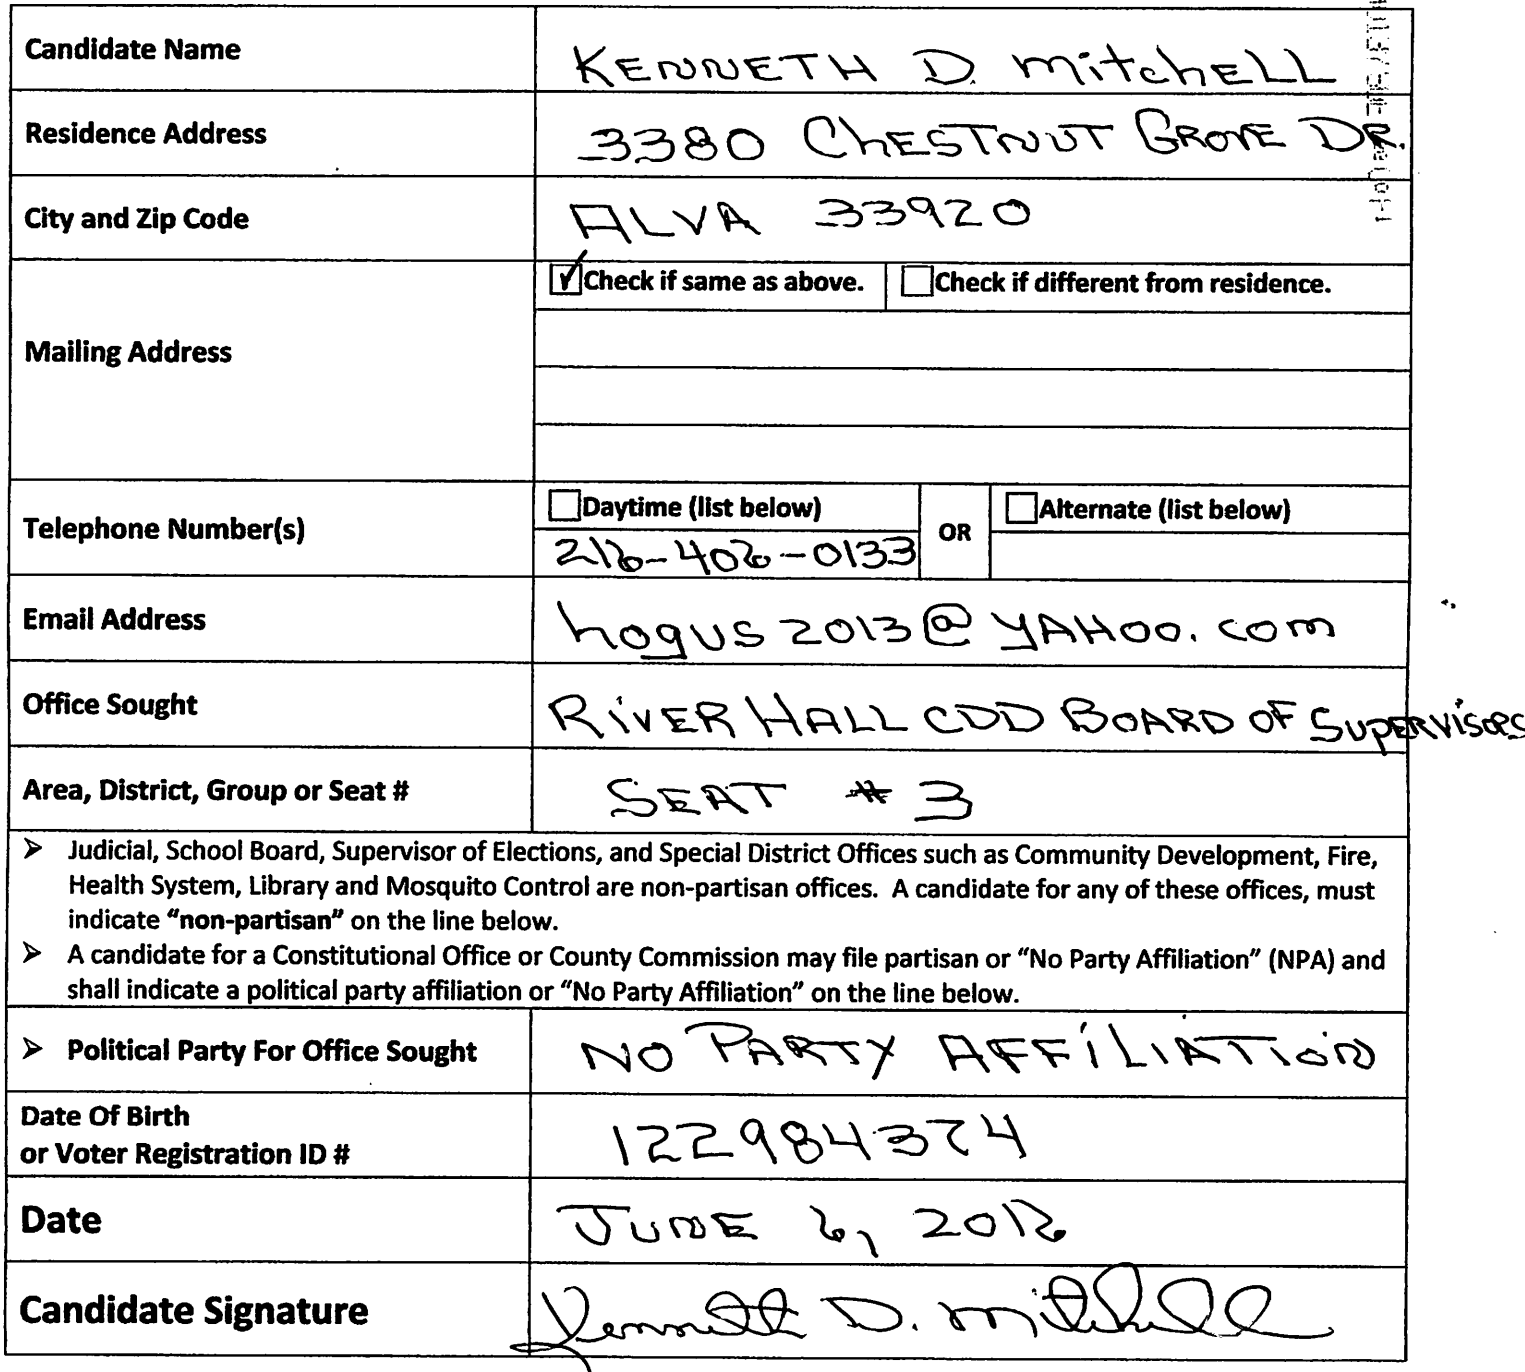 Candidate Name
KENNETH D. MitchELL
Residence Address
3380 ChESTNUT GROVE DR.
City and Zip Code
ALVA 33920
Check if same as above.
Check if different from residence.
Mailing Address
Telephone Number(s)
Daytime (list below)
OR
Alternate (list below)
216-406-0133
Email Address
hogus2013@YAHOO.com
Office Sought
RiVER HALL CDD BOARD OF SUPERVISORS
Area, District, Group or Seat #
SEAT #3
➢ Judicial, School Board, Supervisor of Elections, and Special District Offices such as Community Development, Fire,
Health System, Library and Mosquito Control are non-partisan offices. A candidate for any of these offices, must
indicate "non-partisan" on the line below.
➢ A candidate for a Constitutional Office or County Commission may file partisan or "No Party Affiliation" (NPA) and
shall indicate a political party affiliation or "No Party Affiliation" on the line below.
➢ Political Party For Office Sought
NO PARTY AFFiLIATION
Date Of Birth
or Voter Registration ID #
122984374
Date
JUNE 6, 2016
Candidate Signature
Kenneth D. Mitchell